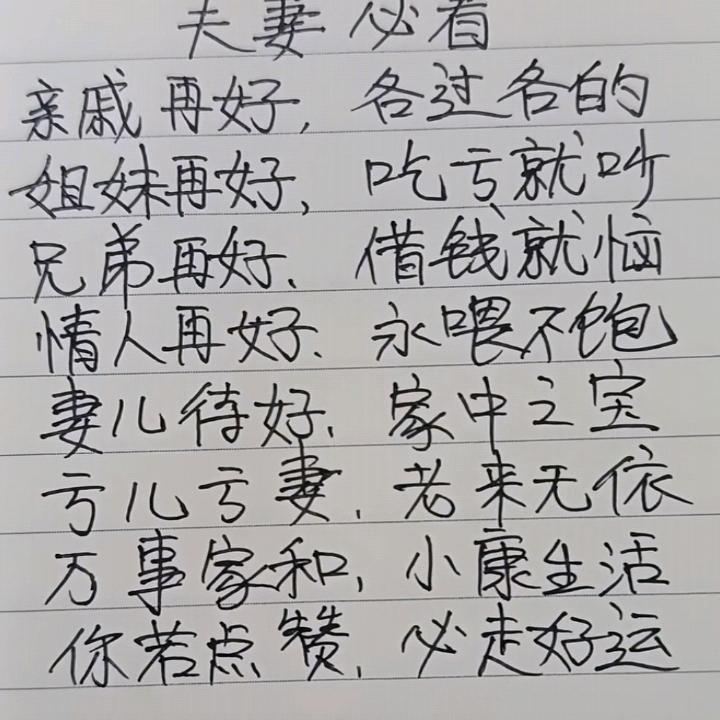 夫妻必看
亲戚再好，各过各的
姐妹再好，吃亏就叫
兄弟再好、借钱就恼
情人再好、永喂不饱
妻儿待好、家中之宝
亏儿亏妻、老来无依
万事家和，小康生活
你若点赞、必走好运